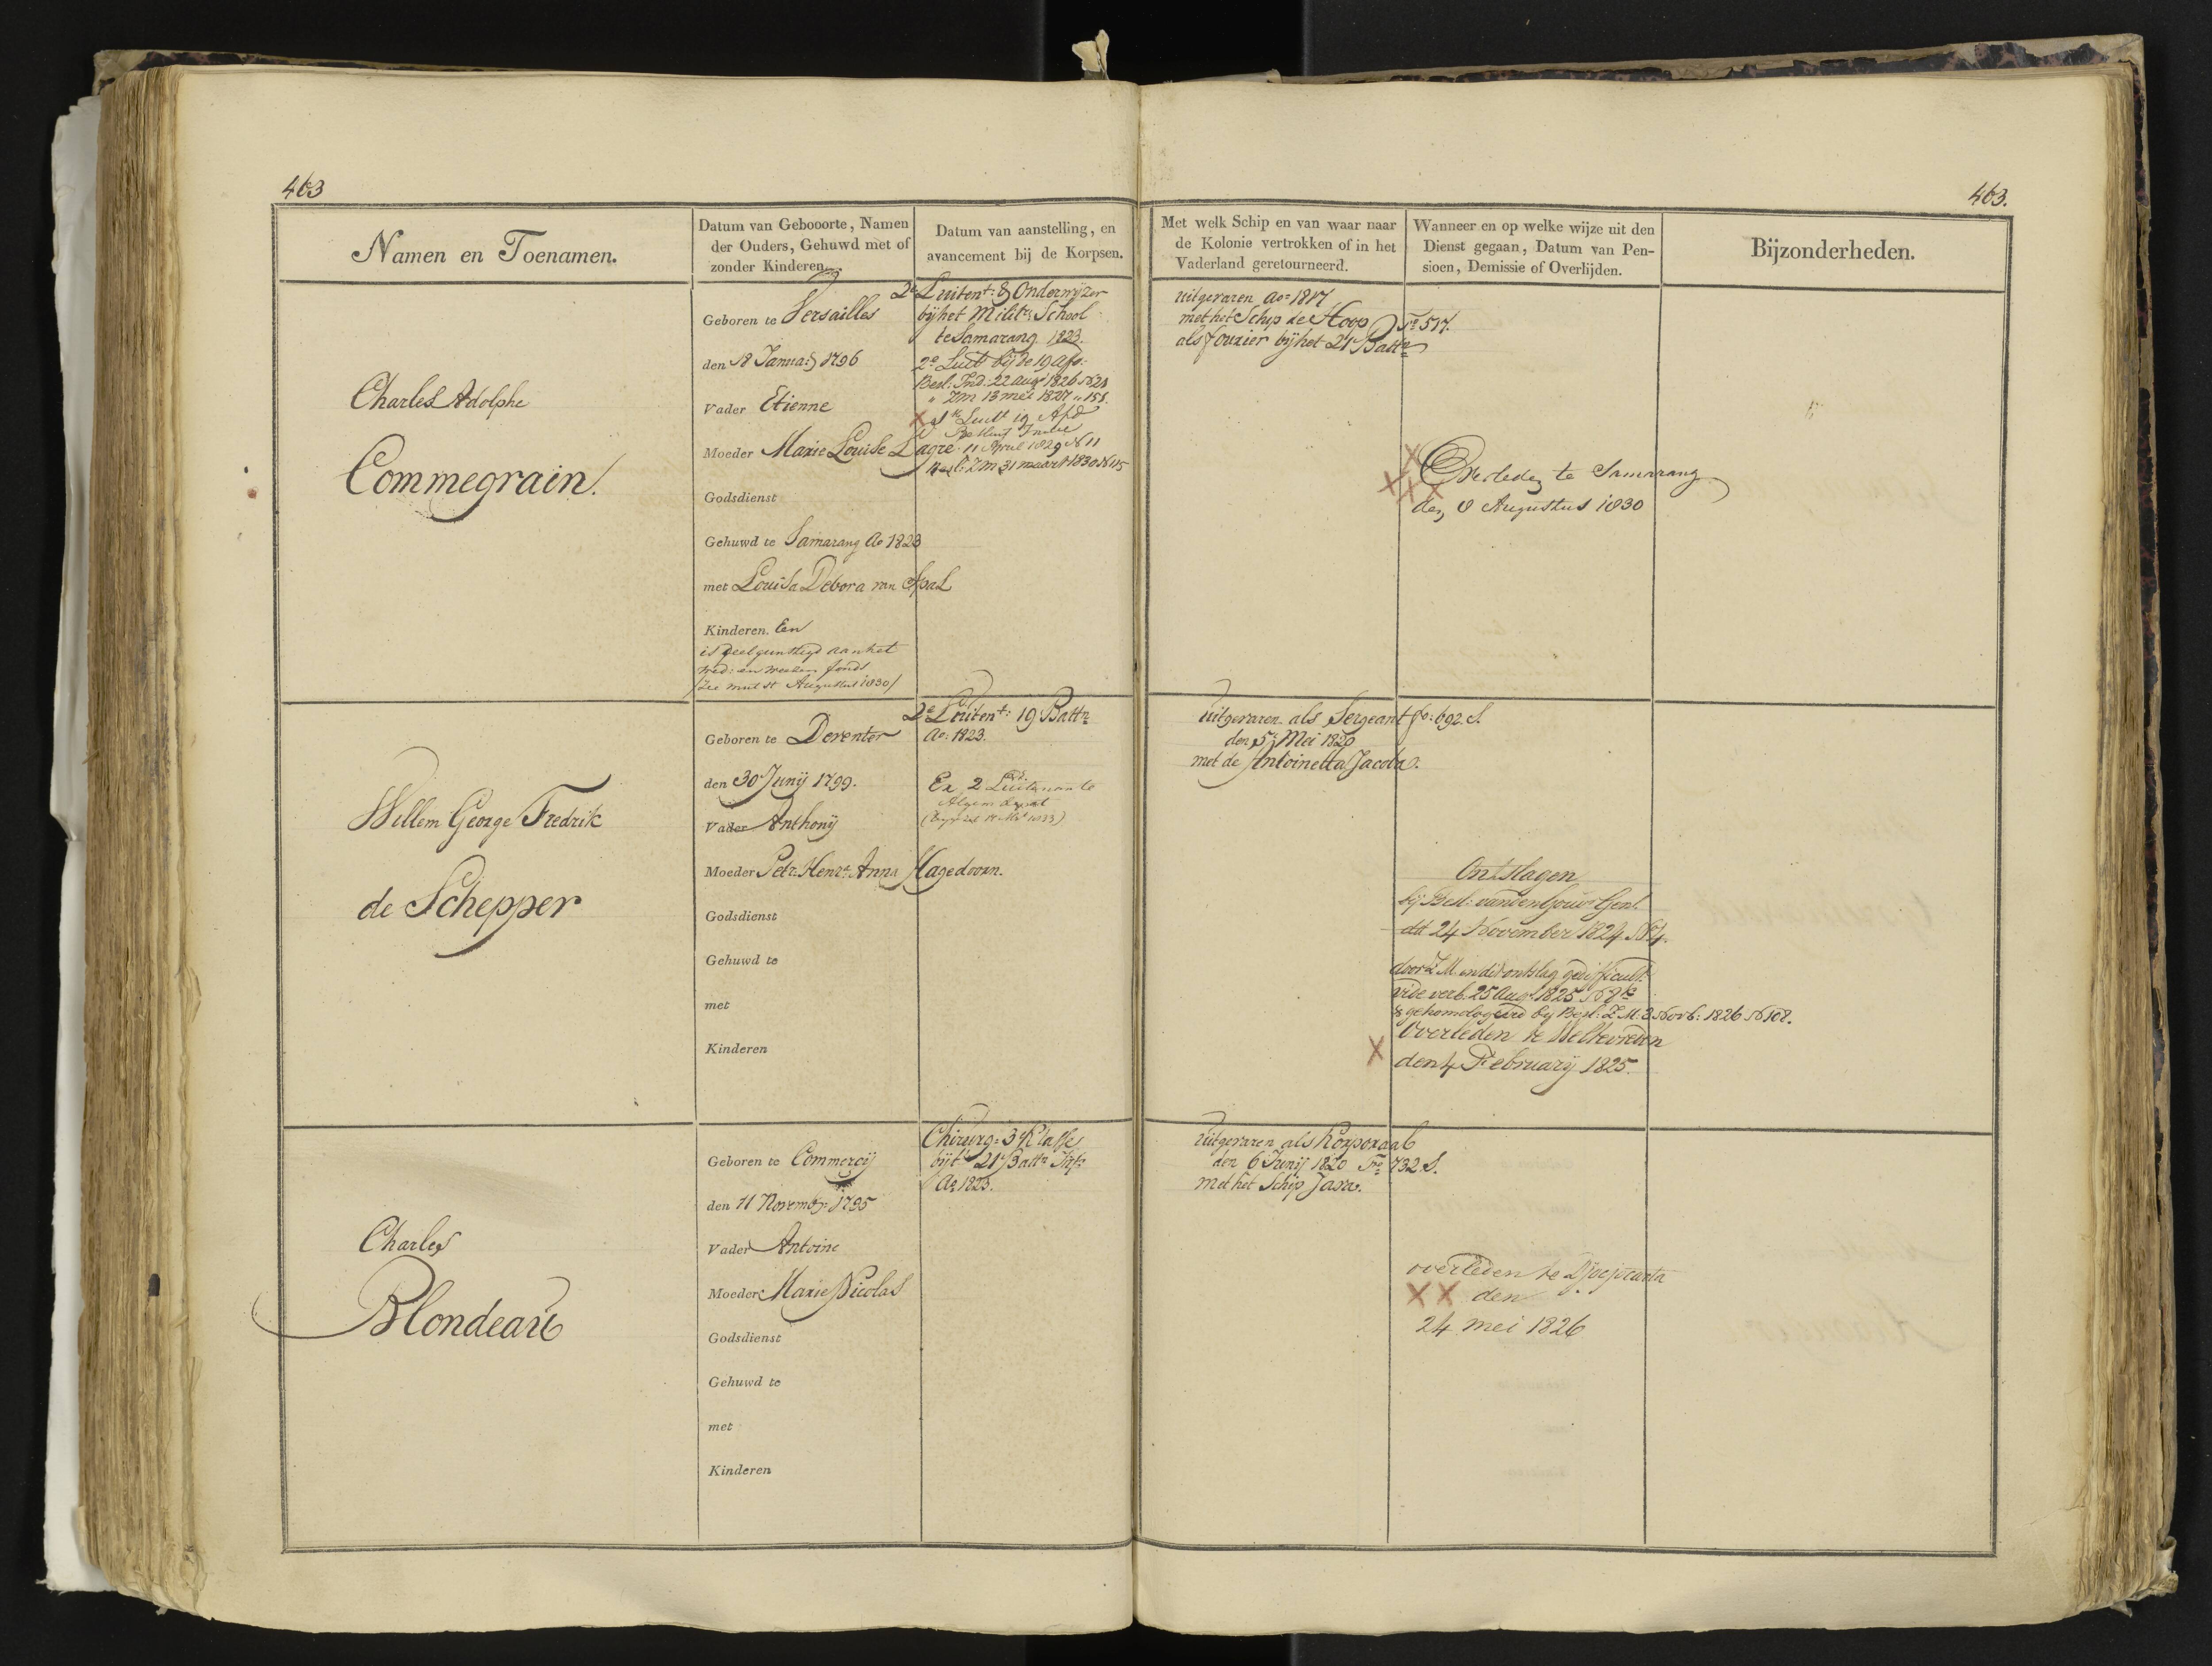 463
463.
Namen en Toenamen.
Datum van Gebooorte, Namen
der Ouders, Gehuwd met of
zonder Kinderen.
Datum van aanstelling, en
avancement bij de Korpsen.
Met welk Schip en van waar naar
de Kolonie vertrokken of in het
Vaderland geretourneerd.
Wanneer en op welke wijze uit den
Dienst gegaan, Datum van Pen-
sioen, Demissie of Overlijden.
Bijzonderheden.
Charles Adolphe
Commegrain.
Geboren te Versailles
den 18 Januarij 1796
Vader Etienne
Moeder Marie Louise Lagre
Godsdienst
Gehuwd te Samarang Ao 1823
met Louisa Debora van Spal
Kinderen. Een
is deelgeregtigd aan het
wed: en weezen fonds
2e Luitent: & Onderwijzer
bij het Milit: School
te Samarang 1823.
2e Luit bij de 19 Afd:
Besl: Ind: 22 Aug 1826 No 21
" ZM 13 mei 1827 " 151.
1e Luit 19 Afd
Besluit Indie
11 April 1829 No 11
Besl: ZM 31 maart 1830 No 115
uitgevaren ao 1817
met het Schip de Hoop Fo 517.
als fourier bij het 21 Battn
Overleden te Samarang
den 8 Augustus 1830
Willem George Fredrik
de Schepper
Geboren te Deventer
den 30 Junij 1799.
Vader Anthonij
Moeder Petr. Henr: Anna Hagedoorn.
Godsdienst
Gehuwd te
met
Kinderen
2e Luitent: 19 Battn
Ao: 1823.
2 Luitenante
uitgevaren als Sergeant fo: 692. S.
den 5 Mei 1820
met de Antoinetta Jacoba.
Ontslagen
bij Besl: van den Gouvr Genl.
dd 24 November 1824 No 4.
door Z M in dit ontslag gedifficult:
vide verb. 25 Aug 1825 No
& gehomologeerd bij Besl: Z M: 3 Novb: 1826 No 108.
Overleden te Weltevreden
den 4 February 1825.
Charles
Blondeau
Geboren te Commercij
den 11 Novemb: 1795
Vader Antoine
Moeder Marie Nicolas
Godsdienst
Gehuwd te
met
Kinderen
Chirurg: 3e Klasse
bij 't 21 Battn Inf:
Ao 1823.
uitgevaren als Korporaal
den 6 Junij 1820 Fo 732 S.
met het Schip Java.
overleden te Djocjocarta
den
24 mei 1826